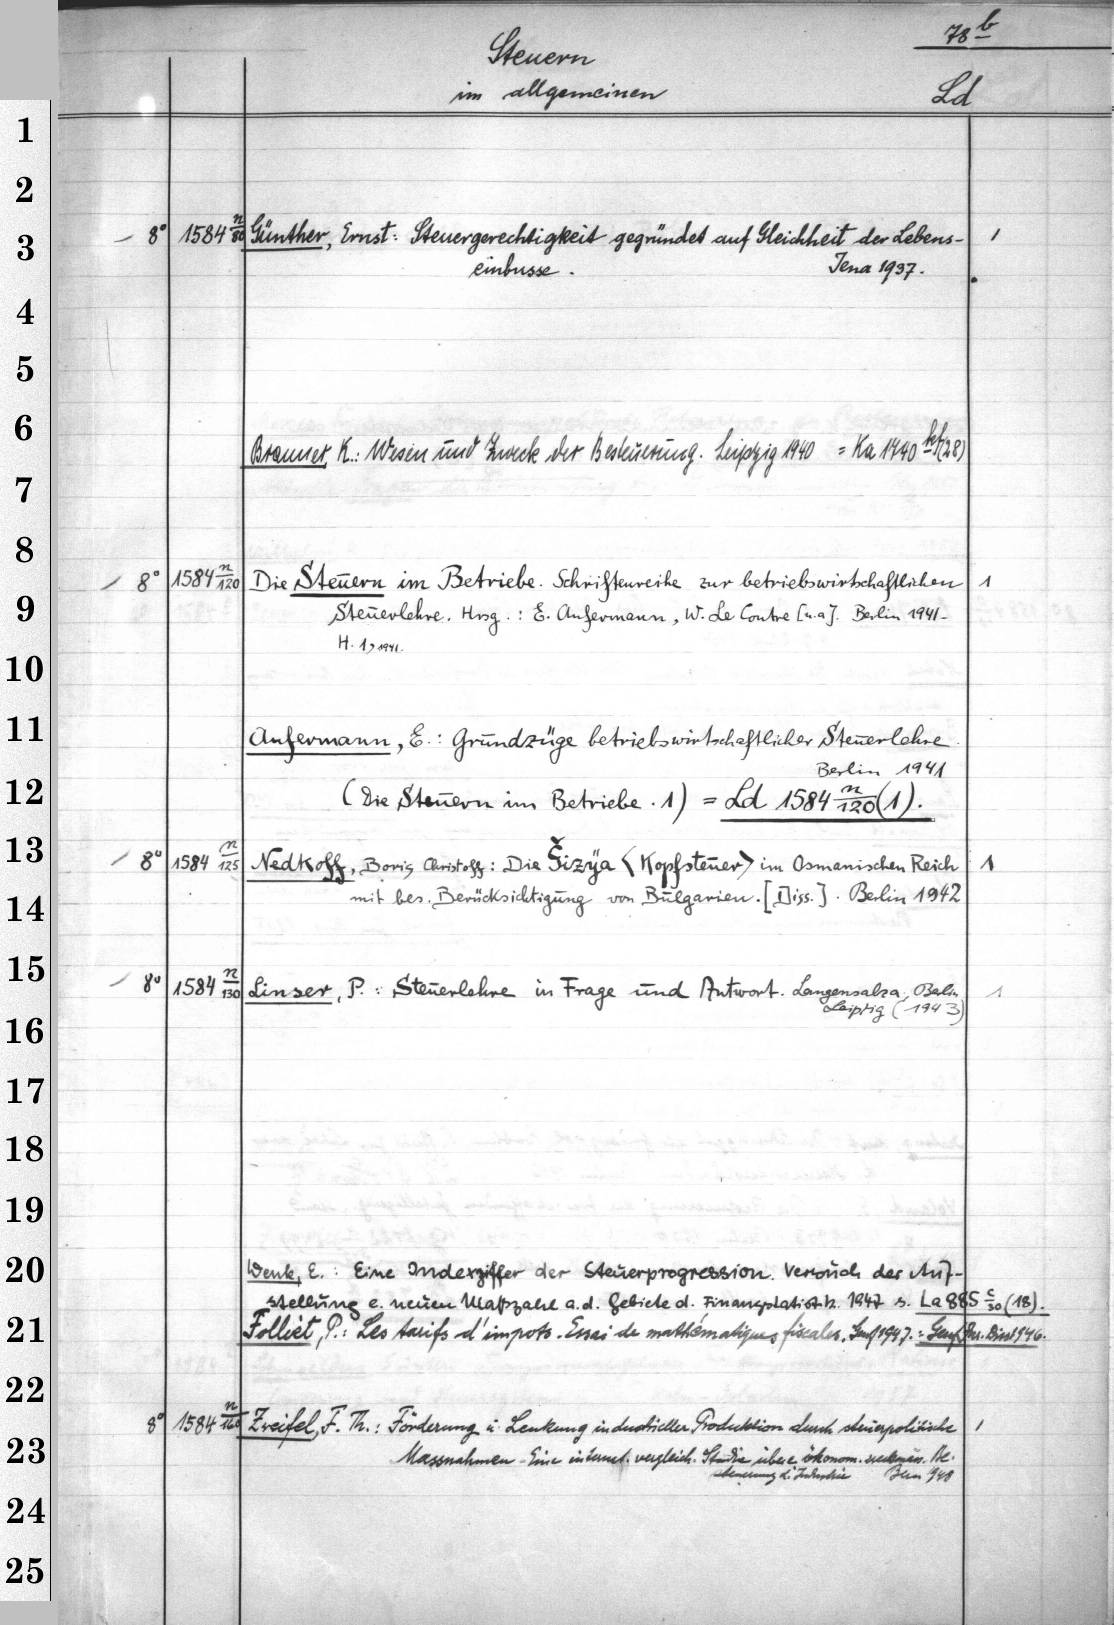 78 b
Steuern
im allgemeinen
Ld
1
2
3
4
5
6
7
8
9
10
11
12
13
14
15
16
17
18
19
20
21
22
23
24
25
8° 1584 n/80 Günther, Ernst: Steuergerechtigkeit gegründet auf Gleichheit der Lebens- 1
einbusse. Jena 1937.
Bräuer, K.: Wesen und Zweck der Besteuerung. Leipzig 1940 = Ka 1740 (28)
8° 1584 n/120 Die Steuern im Betriebe. Schriftenreihe zur betriebswirtschaftlichen 1
Steuerlehre. Hrsg.: E. Aufermann, W. Le Coutre [u.a]. Berlin 1941-
H. 1, 1941.
Aufermann, E.: Grundzüge betriebswirtschaftlicher Steuerlehre.
Berlin 1941
(Die Steuern im Betriebe. 1) = Ld 1584 n/120 (1).
8° 1584 n/125 Nedkoff, Boris Christoff: Die Ğizya <Kopfsteuer> im Osmanischen Reich 1
mit bes. Berücksichtigung von Bulgarien. [Diss.]. Berlin 1942
8° 1584 n/130 Linser, P.: Steuerlehre in Frage und Antwort. Langensalza, Berlin, 1
Leipzig (1943)
Wenk, E.: Eine Indexziffer der Steuerprogression. Versuch der Auf-
stellung e. neuen Maßzahl a.d. Gebiete d. Finanzstatistik. 1947 s. La 885 c/30 (18).
Folliet, P.: Les tarifs d'impots. Essai de mathématiques fiscales. Genf 1947. = Genf Jur. Diss 1946.
8° 1584 n/160 Zweifel, F. Th.: Förderung u. Lenkung industrieller Produktion durch steuerpolitische 1
Massnahmen - Eine internat. vergleich. Studie über e. ökonom. zweckmäss. Be-
steuerung d. Industrie Bern 948